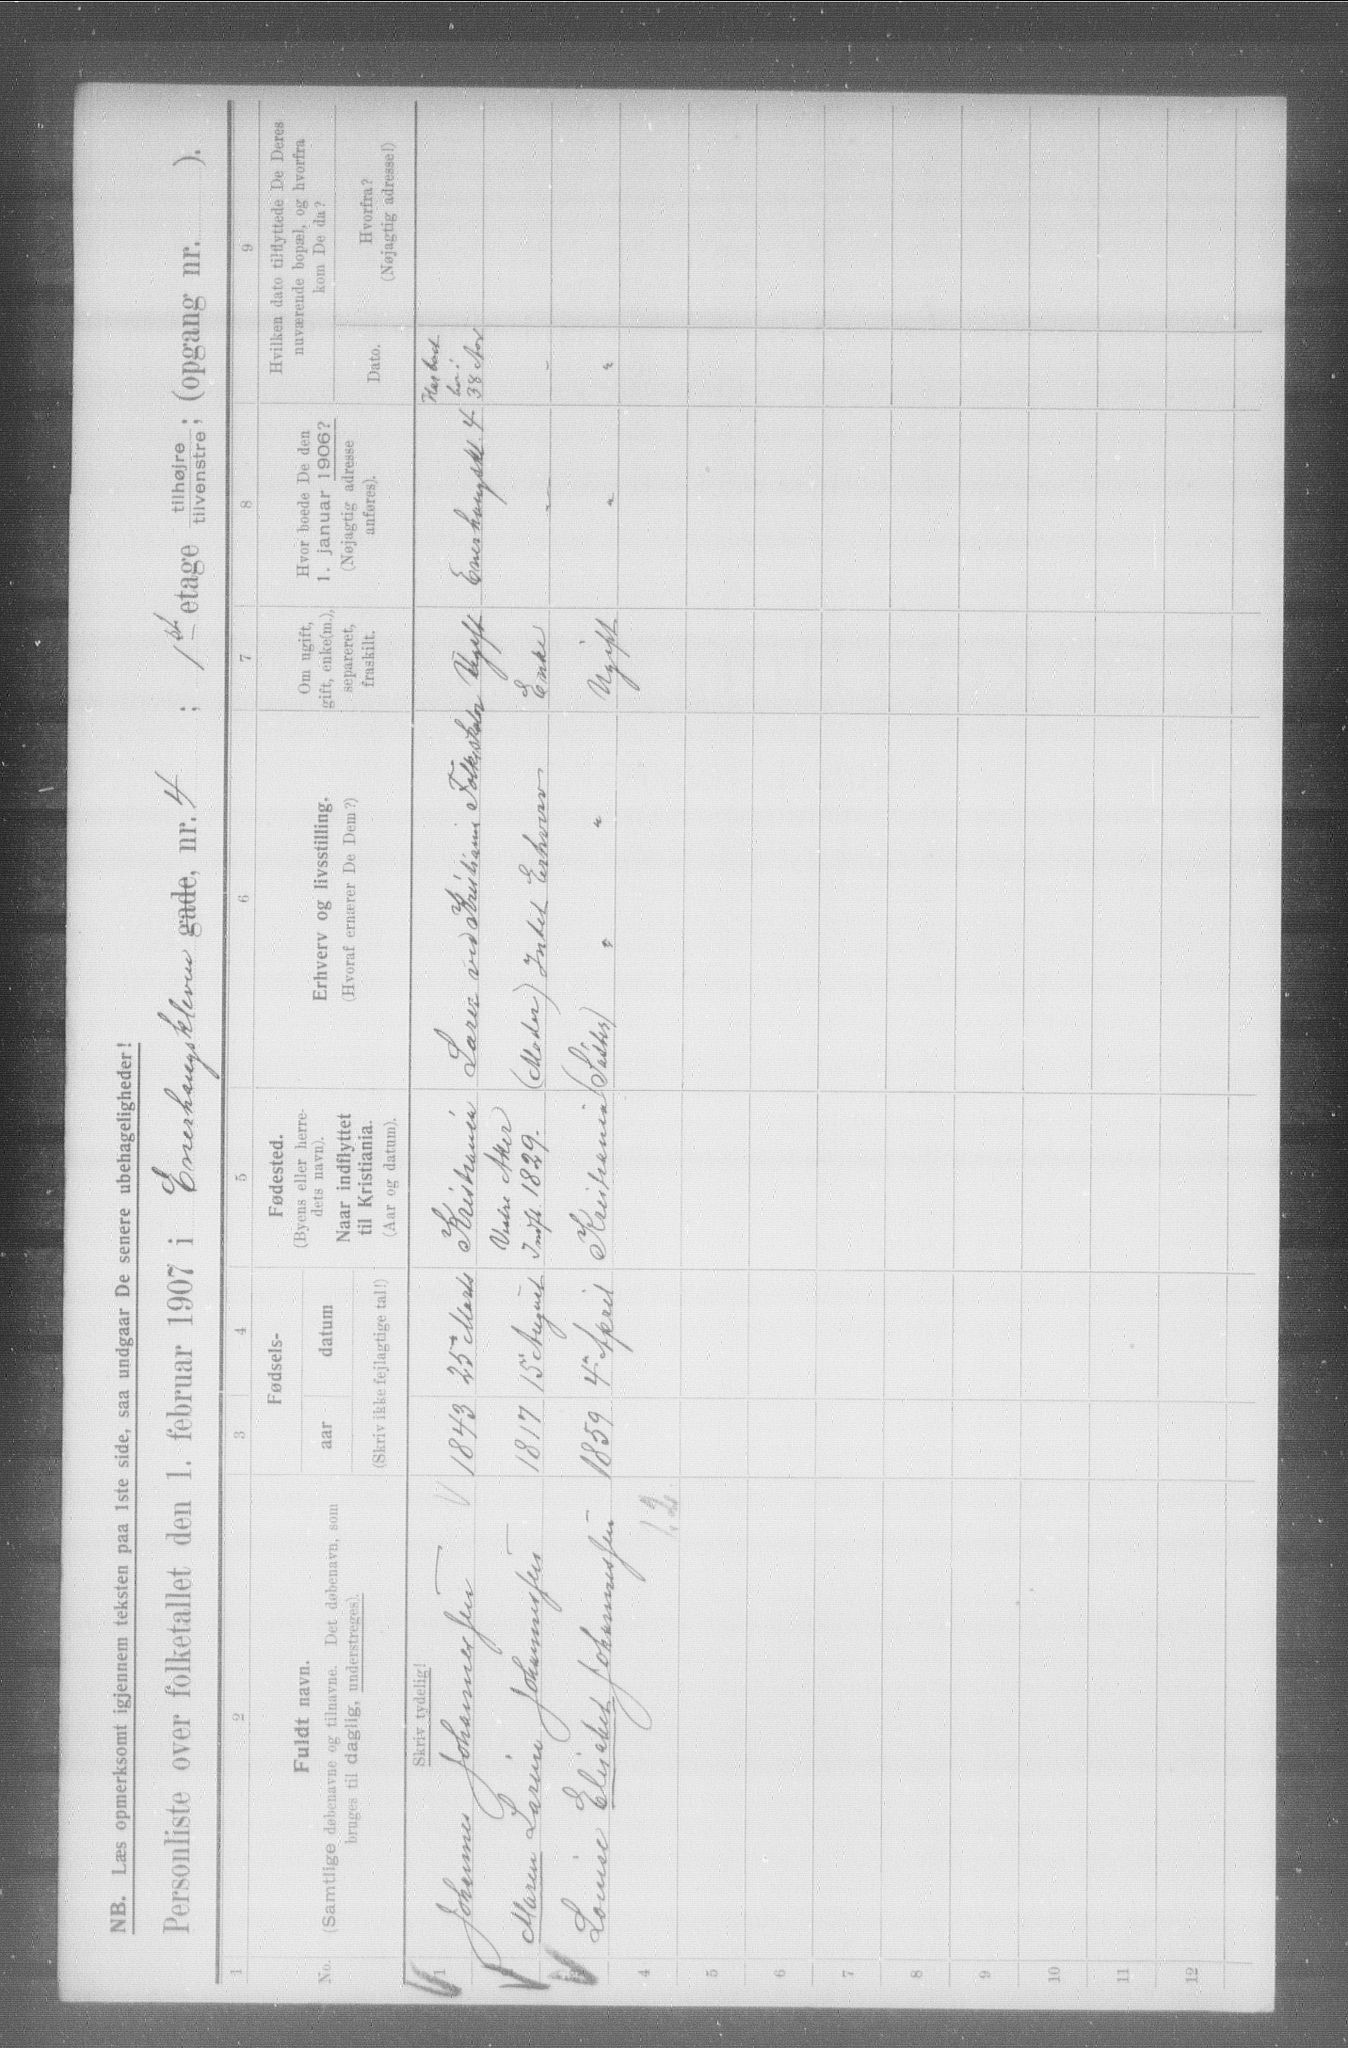 NB. Læs opmerksomt igjennem teksten paa 1ste side, saa undgaar De senere ubehageligheder!
Personliste over folketallet den 1. februar 1907 i Enerhaugskleven gade, nr. 4 ; 1ste etage tilhøjre tilvenstre; (opgang nr. ).
1 2 3 4 5 6 7 8 9
No.
Fuldt navn.
(Samtlige døbenavne og tilnavne. Det døbenavn, som
bruges til daglig, understreges).
Fødsels-
aar datum
(Skriv ikke fejlagtige tal!)
Fødested.
(Byens eller herre-
dets navn).
Naar indflyttet
til Kristiania.
(Aar og datum).
Erhverv og livsstilling.
(Hvoraf ernærer De Dem?)
Om ugift,
gift, enke(m.),
separeret,
fraskilt.
Hvor boede De den
1. januar 1906?
(Nøjagtig adresse
anføres).
Hvilken dato tilflyttede De Deres
nuværende bopæl, og hvorfra
kom De da?
Dato.
Hvorfra?
(Nøjagtig adresse!)
Skriv tydelig!
1 Johannes Johannessen 1843 25 Marts Kristiania Lærer ved Kristiania Folkskoler Ugift Enerhaugskl. 4 Har boet her i 38 Aar
2 Maren Larine Johannessen 1817 15 August Vestre Aker Indfl. 1829. (Moder) Intet Erhverv Enke " "
3 Louise Elisabet Johannessen 1859 4 April Kristiania (Søster) " " Ugift " "
4 1.2
5
6
7
8
9
10
11
12